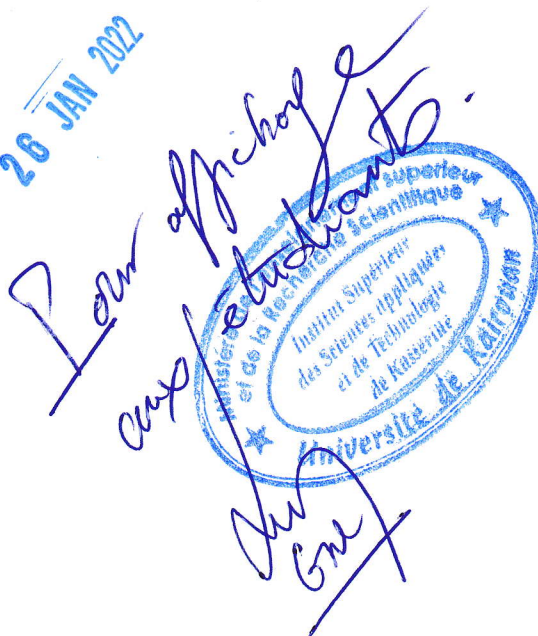 26 JAN 2022
Pour affichage
aux étudiants.
Ministère supérieur
et de la Recherche Scientifique
Institut Supérieur
des Sciences appliquées
et de Technologie
de Kasserine
Université de Kairouan